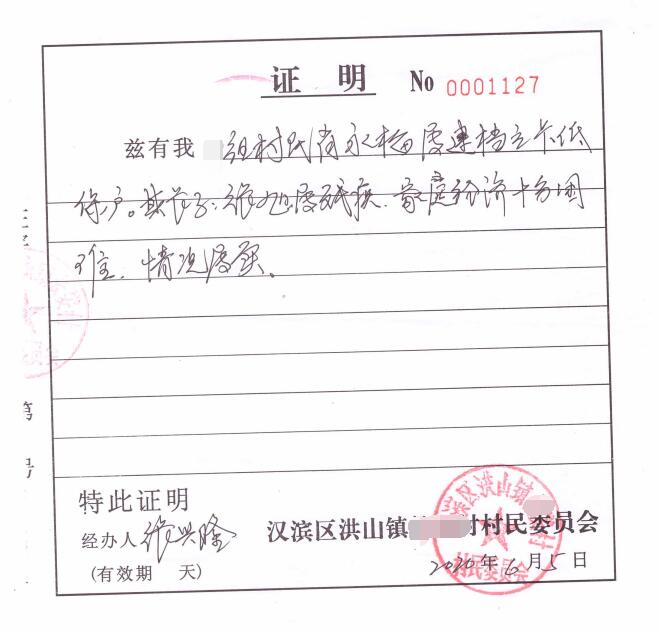 证 明 No 0001127
兹有我 组村民肖永梅属建档立卡低
保户。其长子:张旭属残疾、家庭经济十分困
难、情况属实。
特此证明
经办人张兴隆
汉滨区洪山镇 村村民委员会
(有效期 天)
2020年6月5日
滨区洪山镇
村民委员会
第
号